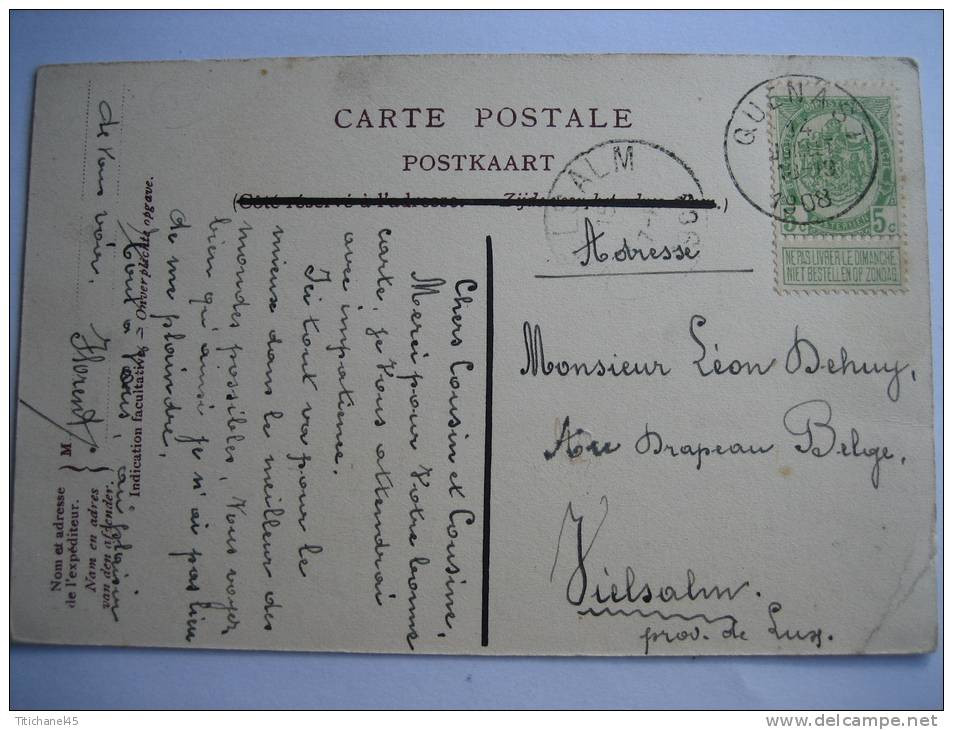 CARTE POSTALE
POSTKAART
(Côté réservé à l'adresse. — Zijde voor het adres.)
QUENAST
1908
5c 5c
NE PAS LIVRER LE DIMANCHE
NIET BESTELLEN OP ZONDAG
SALM
Adresse
Monsieur Léon Dehuy,
Au Drapeau Belge,
Vielsalm.
prov. de Lux.
Chers Cousin et Cousine,
Merci pour Votre bonne
carte, je Vous attendrai
avec impatience.
Ici tout va pour le
mieux dans le meilleur des
mondes possibles, Vous voyez
bien qu'ainsi je n'ai pas lieu
de me plaindre.
Tout à vous, au plaisir
de Vous voir.
Florent
Indication facultative. — Onverplichte opgave.
M
Nom et adresse
de l'expéditeur.
Nam en adres
van den afzender.
Ttichane45
www.delcampe.net